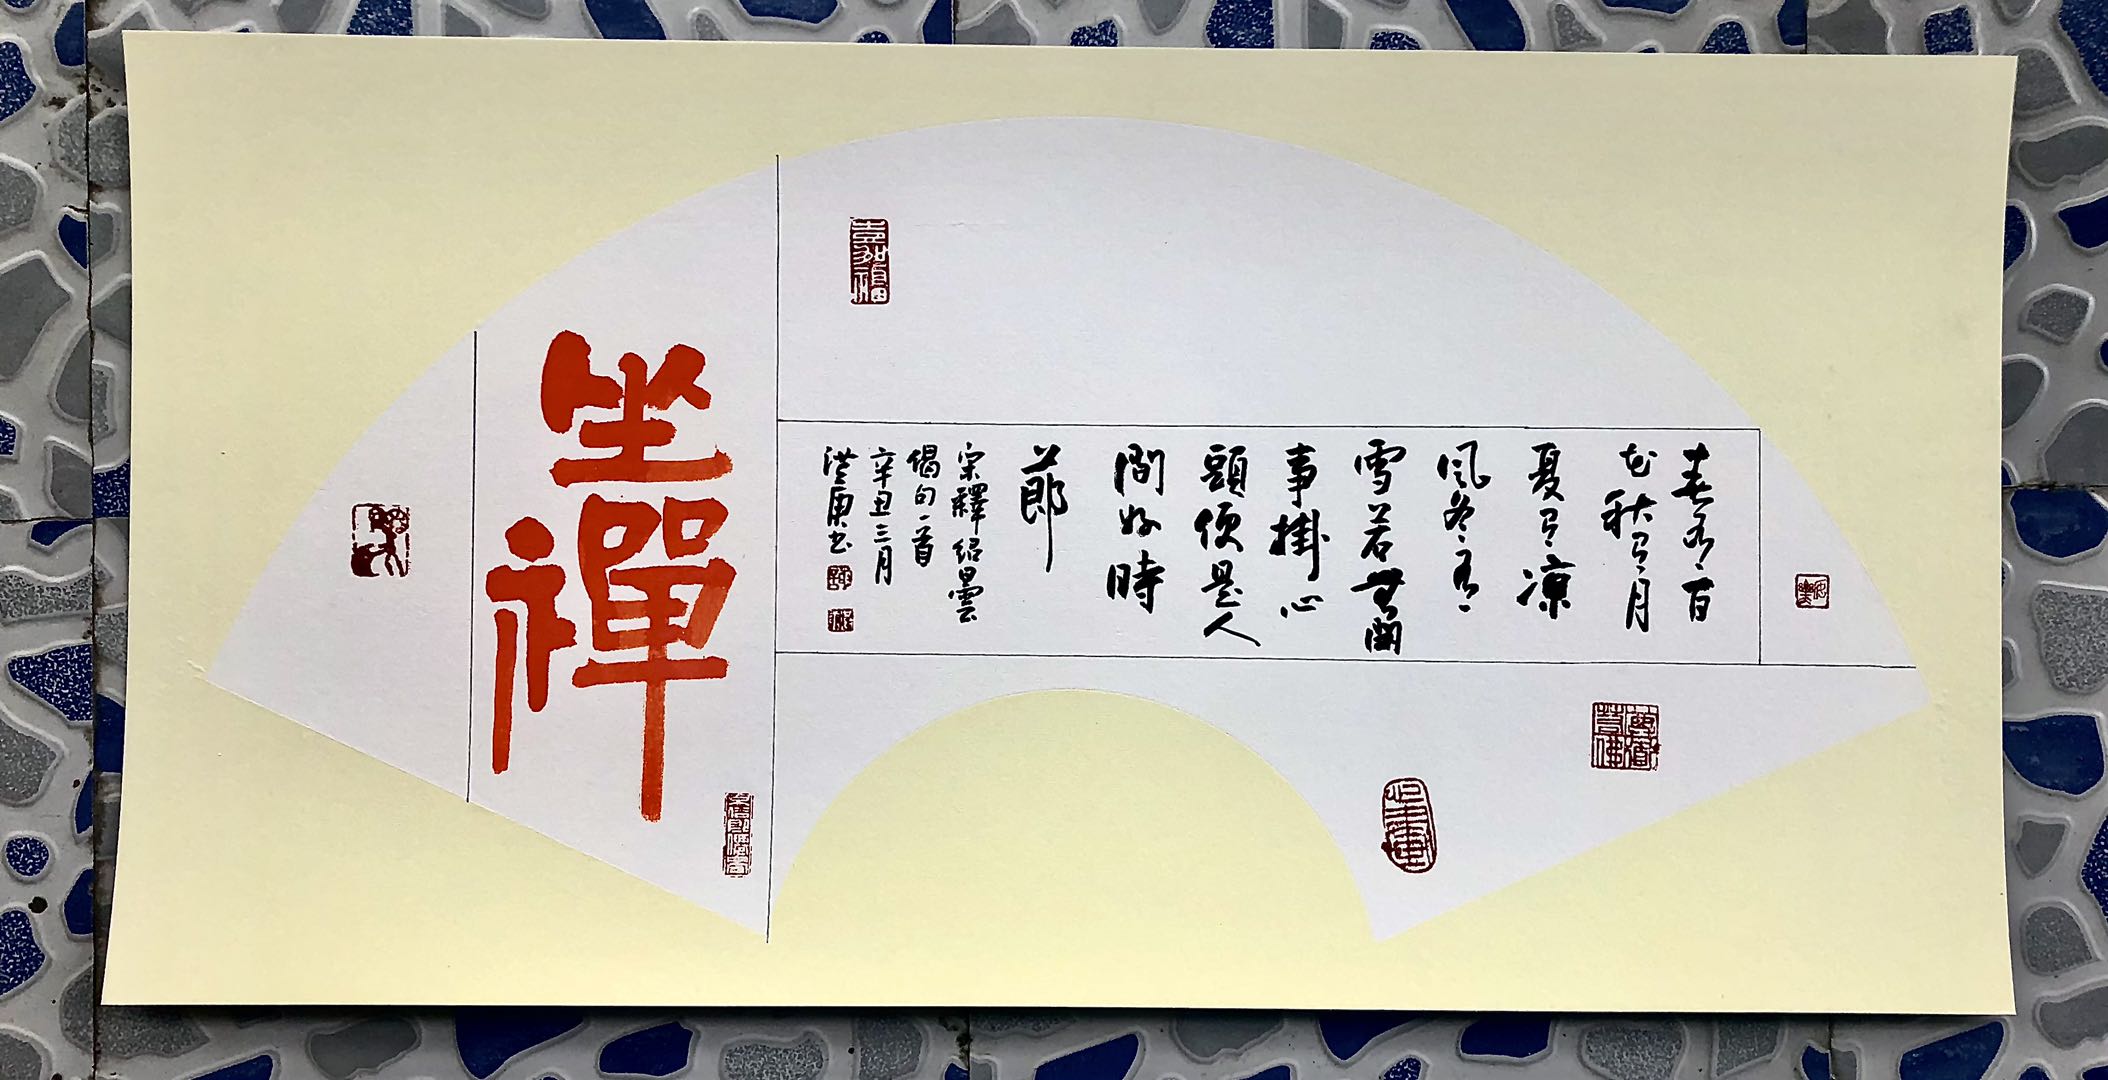 春有百
花秋有月
夏有凉
風冬有
雪若無閑
事掛心
頭便是人
間好時
節
宋釋紹曇
偈句一首
辛丑三月
坐禪